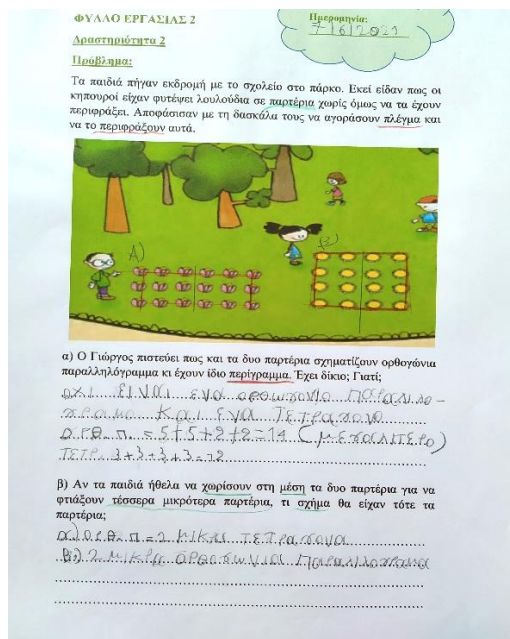 ΦΥΛΛΟ ΕΡΓΑΣΙΑΣ 2
Ημερομηνία:
7/6/2021
Δραστηριότητα 2
Πρόβλημα:
Τα παιδιά πήγαν εκδρομή με το σχολείο στο πάρκο. Εκεί είδαν πως οι
κηπουροί είχαν φυτέψει λουλούδια σε παρτέρια χωρίς όμως να τα έχουν
περιφράξει. Αποφάσισαν με τη δασκάλα τους να αγοράσουν πλέγμα και
να το περιφράξουν αυτά.
Α)
Β)
α) Ο Γιώργος πιστεύει πως και τα δυο παρτέρια σχηματίζουν ορθογώνια
παραλληλόγραμμα κι έχουν ίδιο περίγραμμα. Έχει δίκιο; Γιατί;
ΟΧΙ ΕΙΝΑΙ ΕΝΑ ΟΡΘΟΓΟΝΙΟ ΠΑΡΑΛΙΛΟ-
ΓΡΑΜΟ ΚΑΙ ΕΝΑ ΤΕΤΡΑΓΟΝΟ
ΟΡΘ. Π. = 5+5+2+2=14 (ΜΕΓΑΛΙΤΕΡΟ)
ΤΕΤΡ. 3+3+3+3=12
β) Αν τα παιδιά ήθελα να χωρίσουν στη μέση τα δυο παρτέρια για να
φτιάξουν τέσσερα μικρότερα παρτέρια, τι σχήμα θα είχαν τότε τα
παρτέρια;
α) ΟΡΘ. Π = 2 ΜΙΚΡΑ ΤΕΤΡΑΓΟΝΑ
β) 2 ΜΙΚΡΑ ΟΡΘΟΓΩΝΙΑ ΠΑΡΑΛΙΛΟΓΡΑΜΑ